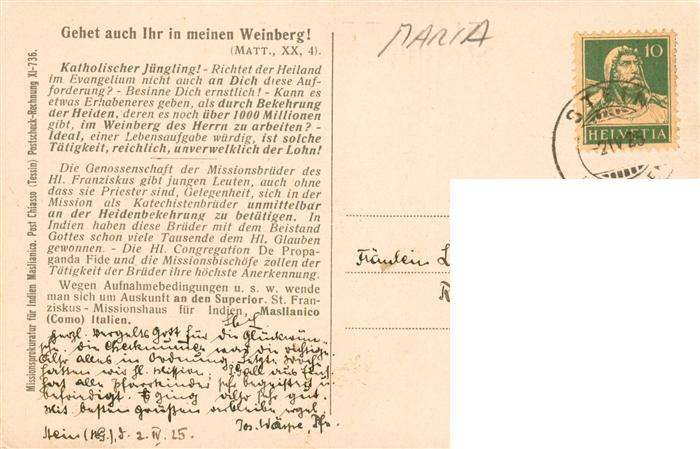 Gehet auch Ihr in meinen Weinberg!
(MATT., XX, 4).
Katholischer Jüngling! - Richtet der Heiland
im Evangelium nicht auch an Dich diese Auf-
forderung? - Besinne Dich ernstlich! - Kann es
etwas Erhabeneres geben, als durch Bekehrung
der Heiden, deren es noch über 1000 Millionen
gibt, im Weinberg des Herrn zu arbeiten? -
Ideal, einer Lebensaufgabe würdig, ist solche
Tätigkeit, reichlich, unverwelklich der Lohn!
Die Genossenschaft der Missionsbrüder des
Hl. Franziskus gibt jungen Leuten, auch ohne
dass sie Priester sind, Gelegenheit, sich in der
Mission als Katechistenbrüder unmittelbar
an der Heidenbekehrung zu betätigen. In
Indien haben diese Brüder mit dem Beistand
Gottes schon viele Tausende dem Hl. Glauben
gewonnen. - Die Hl. Congregation De Propa-
ganda Fide und die Missionsbischöfe zollen der
Tätigkeit der Brüder ihre höchste Anerkennung.
Wegen Aufnahmebedingungen u. s. w. wende
man sich um Auskunft an den Superior. St. Fran-
ziskus - Missionshaus für Indien, Maslianico
(Como) Italien.
Missionsprokuratur für Indien Maslianico. Post Chiasso (Tessin) Postscheck-Rechnung XI-736.
herzl. Vergelts Gott für die Glückwün-
die richtige.
Also alles in Ordnung. Jetzt
hatten wir hl. Mission.
hat alle Pfarrkinder sehr begeistert u.
befriedigt. Es ging alles sehr gut.
Mit besten Grüssen verbleibe
Jos.
Stein (), d. 2. IV. 25.
MARIA
10
HELVETIA
STEIN
2.IV.25
Fräulein L